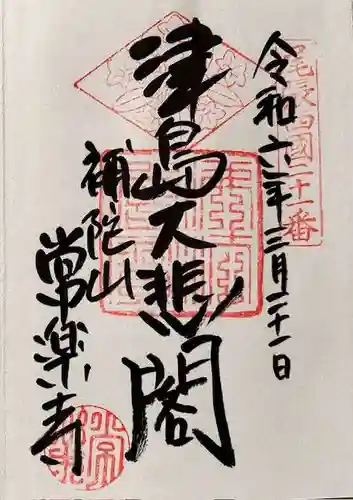 尾張四国二十一番
令和六年三月二十一日
津島大悲閣
補陀山
常楽寺